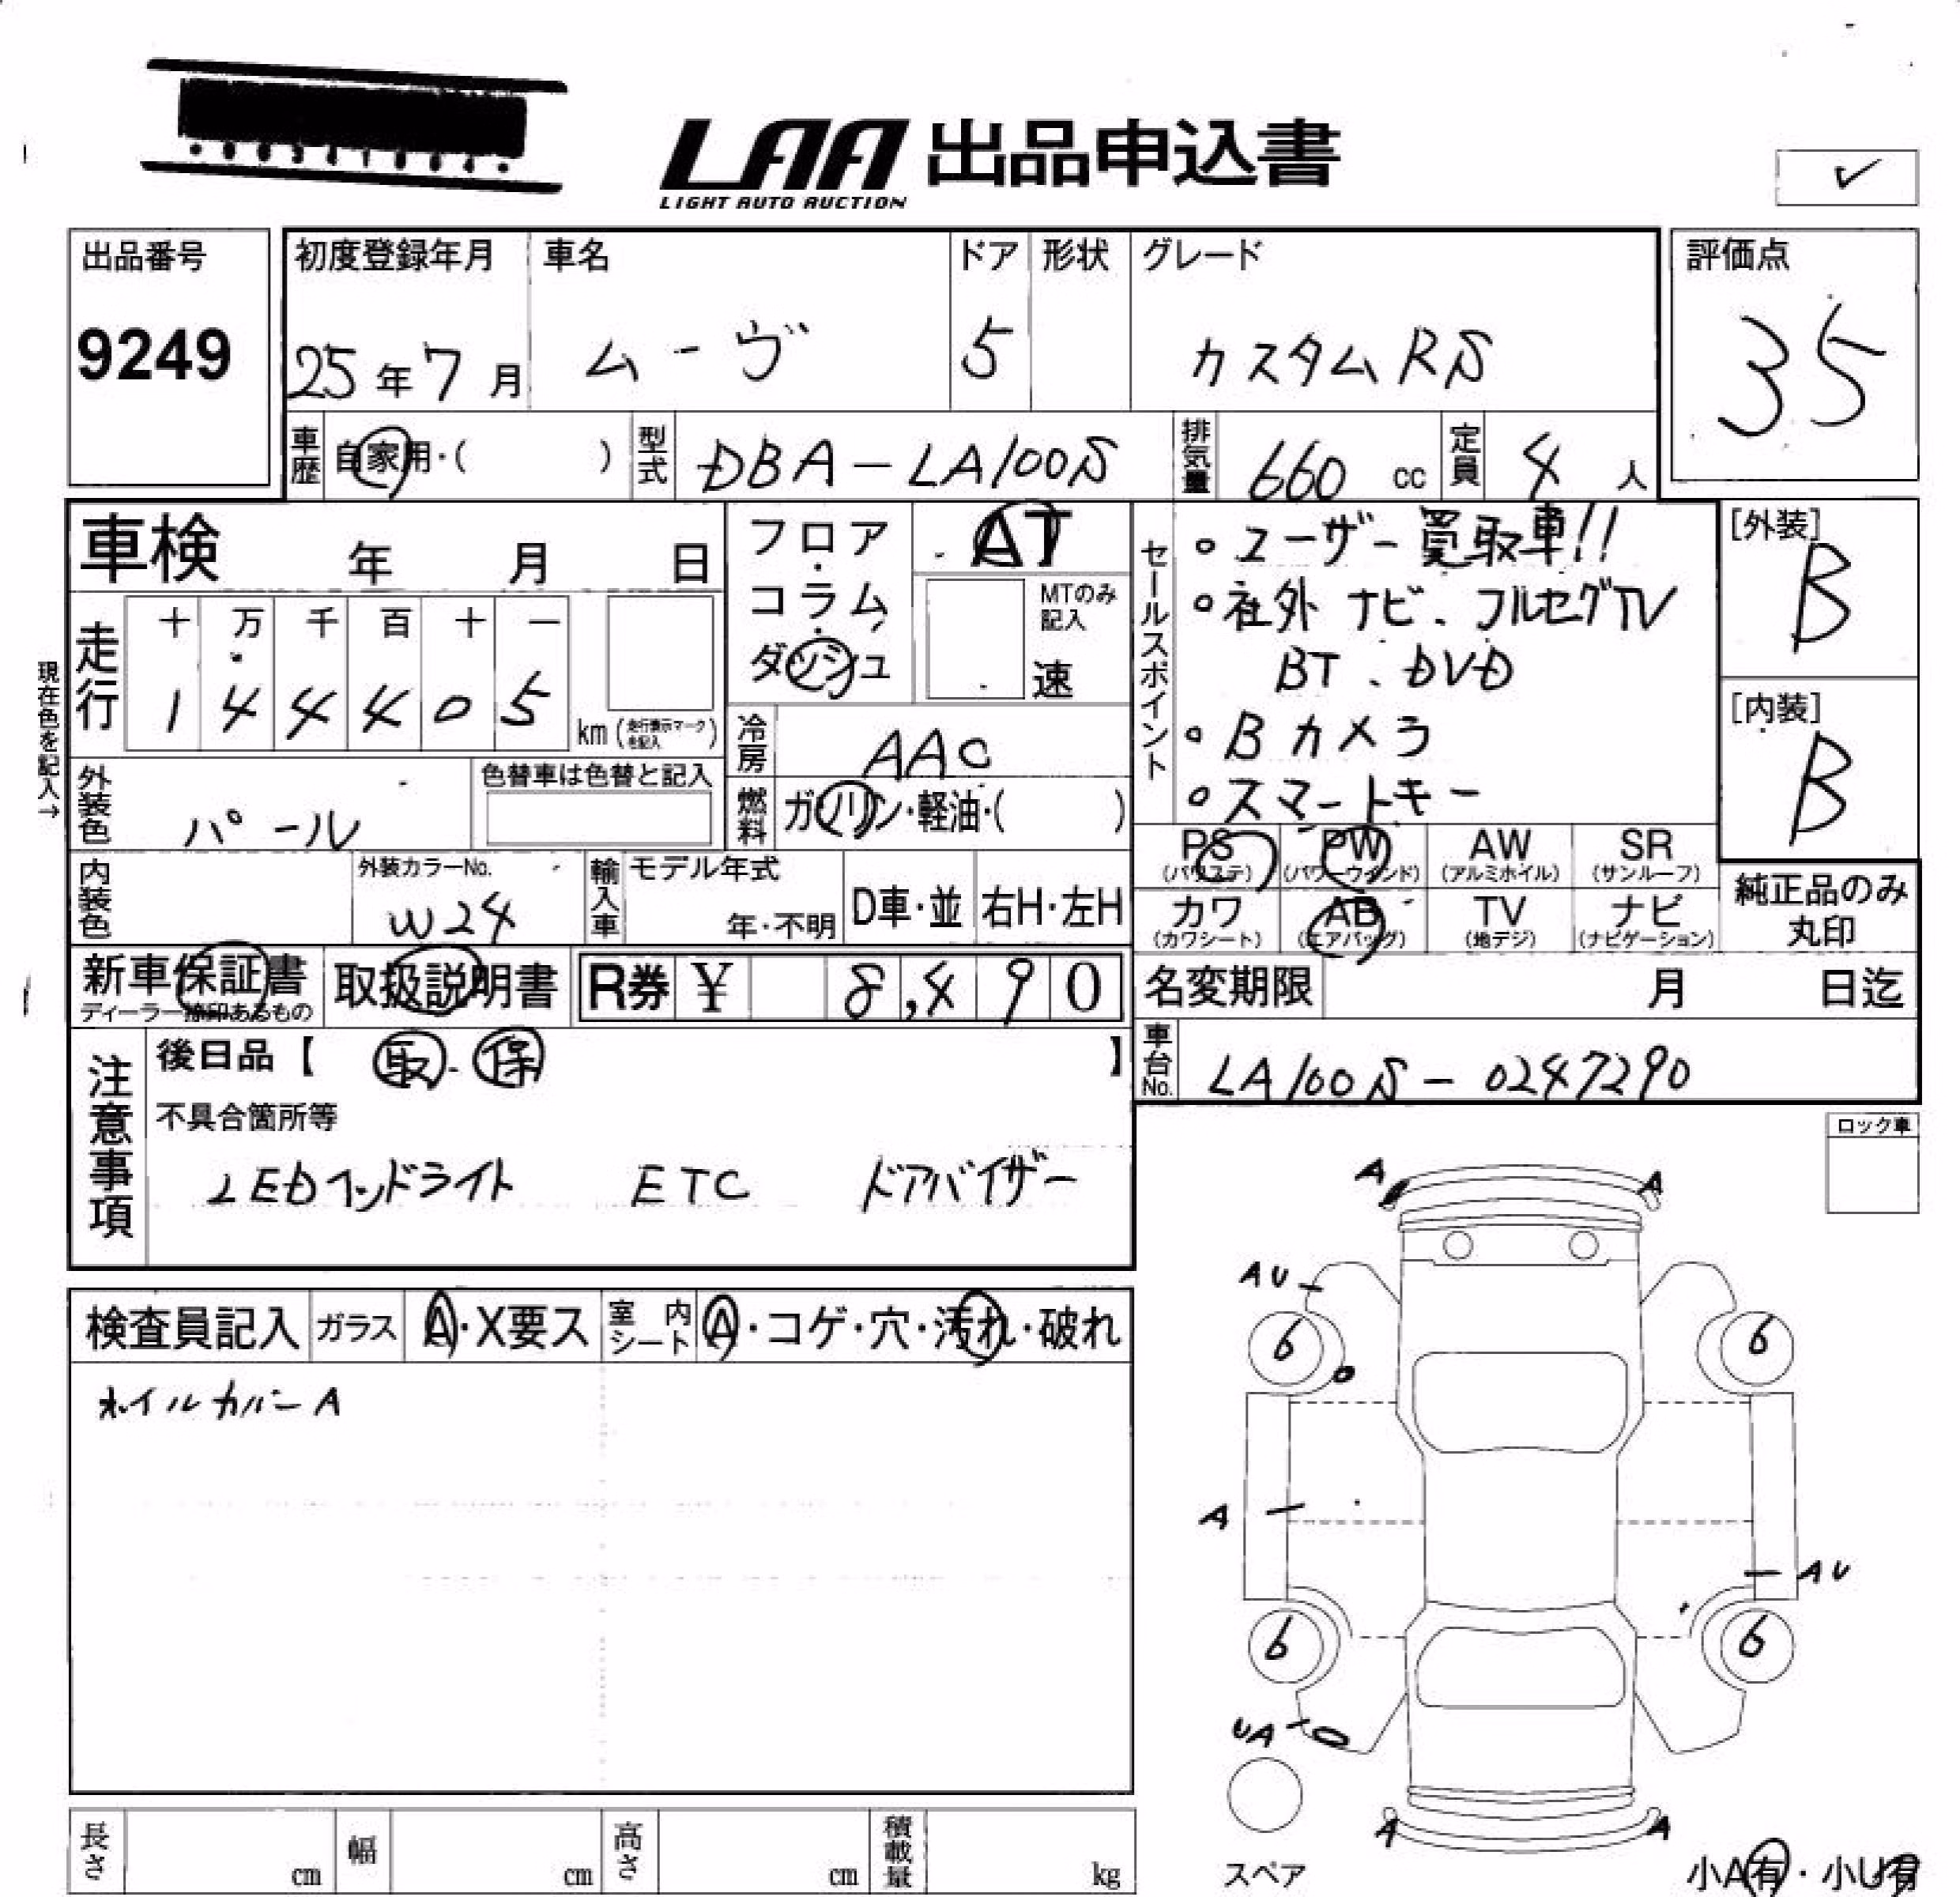 LAA 出品申込書
LIGHT AUTO AUCTION
出品番号
9249
初度登録年月 車名 ドア 形状 グレード
25年7月 ムーヴ 5 カスタムRS
評価点
35
車歴 自家用・( ) 型式 DBA-LA100S 排気量 660 cc 定員 4 人
車検 年 月 日
フロア・コラム・ダッシュ
AT
MTのみ記入
速
走行 十 万 千 百 十 一
1 4 4 4 0 5 km (走行表示マークを記入)
現在色を記入→
外装色 パール
色替車は色替と記入
冷房 AAC
燃料 ガソリン・軽油・( )
セールスポイント
・ユーザー買取車!!
・社外ナビ、フルセグTV
BT、DVD
・Bカメラ
・スマートキー
[外装]
B
[内装]
B
PS (パワステ) PW (パワーウインド) AW (アルミホイル) SR (サンルーフ)
カワ (カワシート) AB (エアバッグ) TV (地デジ) ナビ (ナビゲーション)
純正品のみ丸印
内装色 外装カラーNo. W24
輸入車 モデル年式 年・不明 D車・並 右H・左H
新車保証書 取扱説明書 R券 ¥ 8,490
ディーラー捺印あるもの
名変期限 月 日迄
車台No. LA100S-0247290
注意事項
後日品【 取・保 】
不具合箇所等
LEDヘッドライト ETC ドアバイザー
ロック車
検査員記入 ガラス A・X要ス 室内シート A・コゲ・穴・汚れ・破れ
ホイルカバーA
A A
AU
6 6
A
AU
6 6
UA
A A
スペア
小A有・小U有
長さ cm 幅 cm 高さ cm 積載量 kg